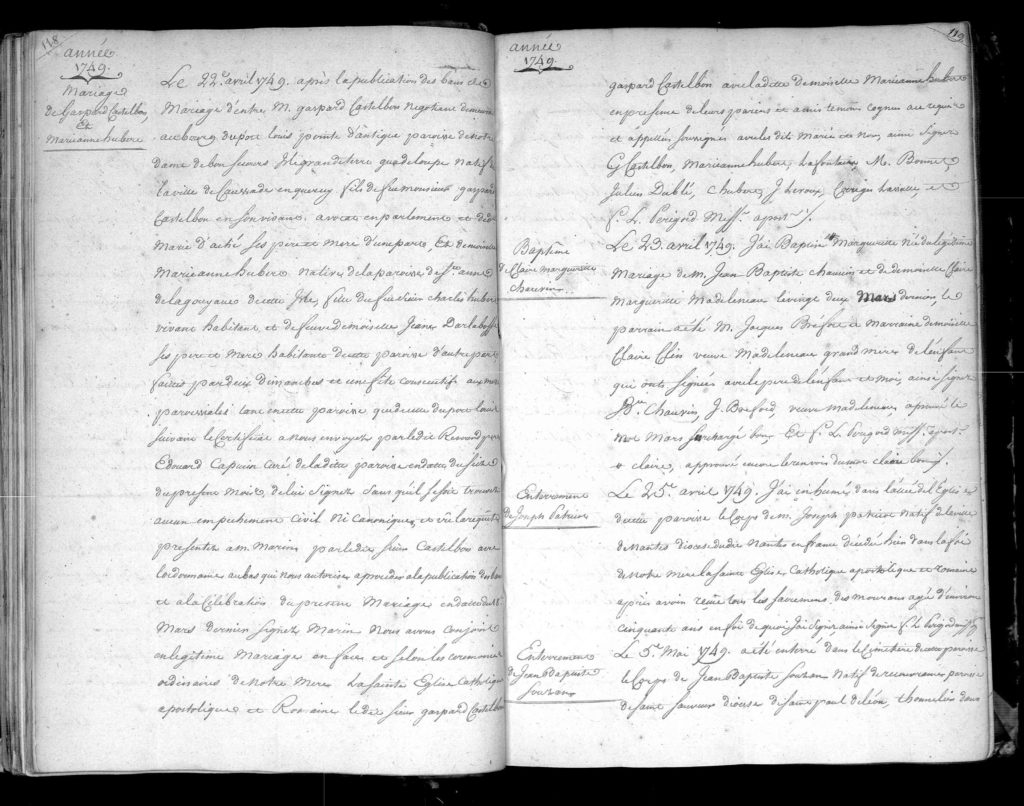 118
année
1749.
Mariage
de Gaspard Castelbon
Et
Marieanne hubert
Le 22e. avril 1749. après la publication des bans de
Mariage d'entre M. gaspard Castelbon Negotiant demeurant
au bourg du port louis pointe d'antigue paroise de notre
dame de bon secours Ile grande terre guadeloupe natif de
la ville de Caussade en quercy fils de feu monsieur gaspard
Castelbon en son vivant avocat en parlement et de de
Marie d'aché ses pere et mere d'une part, Et demoiselle
Marieanne hubert native de la paroise de Ste anne
de la goyave de cette Ile, fille de feu sieur charles hubert
vivant habitant et de feuve demoiselle Jeanne
ses pere et mere habitants de cette paroise d'autre part
faites par deux dimanches et une fête consecutif aux messes
paroissiales tant en cette paroise que de celle du port louis
suivant le Certificat a nous envoyez par le dit Reverend pere
Edouard Capucin curé de ladite paroise en datte du
du present mois, de lui signez sans qu'il se soit trouvez
aucun empechement Civil Ni Canonique, et vû la requête
presentez a m. Marin par le dit sieur Castelbon avec
l'ordonnance au bas qui nous autorise a proceder a la publication des bans
et a la Celebration du present Mariage en datte du
Mars dernier signez Marin Nous avons Conjoint
en legitime Mariage en face et selon les ceremonies
ordinaires de Notre Mere La Sainte Eglise Catholique
apostolique et Romaine le dit sieur gaspard Castelbon
119
année
1749.
gaspard Castelbon avec ladite demoiselle Marieanne hubert
en presence de leurs parens et amis temoins cognus au requis
et appellés soussignés avec les dits Marié et Nous, ainsi signez
G Castelbon, Marieanne hubert, La fontaine, M. Bonnet,
Julien Dublé, C hubert, J. Leroux, et
f. L. Perigord Miss. apost.
Baptême
de Claire marguerite
Chauvin
Le 23. avril 1749. J'ai Baptisé Marguerite Née du legitime
Mariage de m. Jean Baptiste Chauvin et de demoiselle Claire
Marguerite Madeleneau le vingt deux Mars dernier, le
parrain a été M. Jacques Breford et Marraine demoiselle
Claire Clès veuve Madeleneau grand mere de l'enfant
qui onts signés avec le pere de l'enfant et moi, ainsi signez
J. Bte. Chauvin, J. Breford, veuve Madeleneau, aprouvé le
mot Mars surchargé bon, Et f. L. Perigord miss. apost.
+ claire, aprouvé encore le renvoi du mot claire bon.
Enterrement
de Joseph Patrice
Le 25e. avril 1749. J'ai inhumés dans l'allée de l'Eglise
de cette paroise le Corps de m. Joseph patrice Natif de la ville
de Nantes diocese dudit Nantes en france decedé hier dans la foi
de Notre Mere la Sainte Eglise Catholique apostolique et romaine
après avoir recue tous les sacremens des mourans agé d'environ
cinquante ans en foi de quoi J'ai Signez ainsi signé f. L. Perigord
Enterrement
de Jean Baptiste
Le 5e. Mai 1749. a été enterré dans le Cimetiere de cette paroise
le Corps de Jean Baptiste Natif de paroise
de Saint sauveur diocese de Saint paul de léon, thonnelier dans